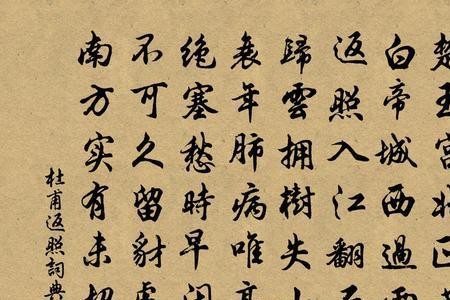 楚王宮北正
白帝城西過雨
返照入江翻石
歸雲拥樹失山
衰年肺病唯高
绝塞愁時早闭
不可久留豺虎
南方实有未招
杜甫返照詞典